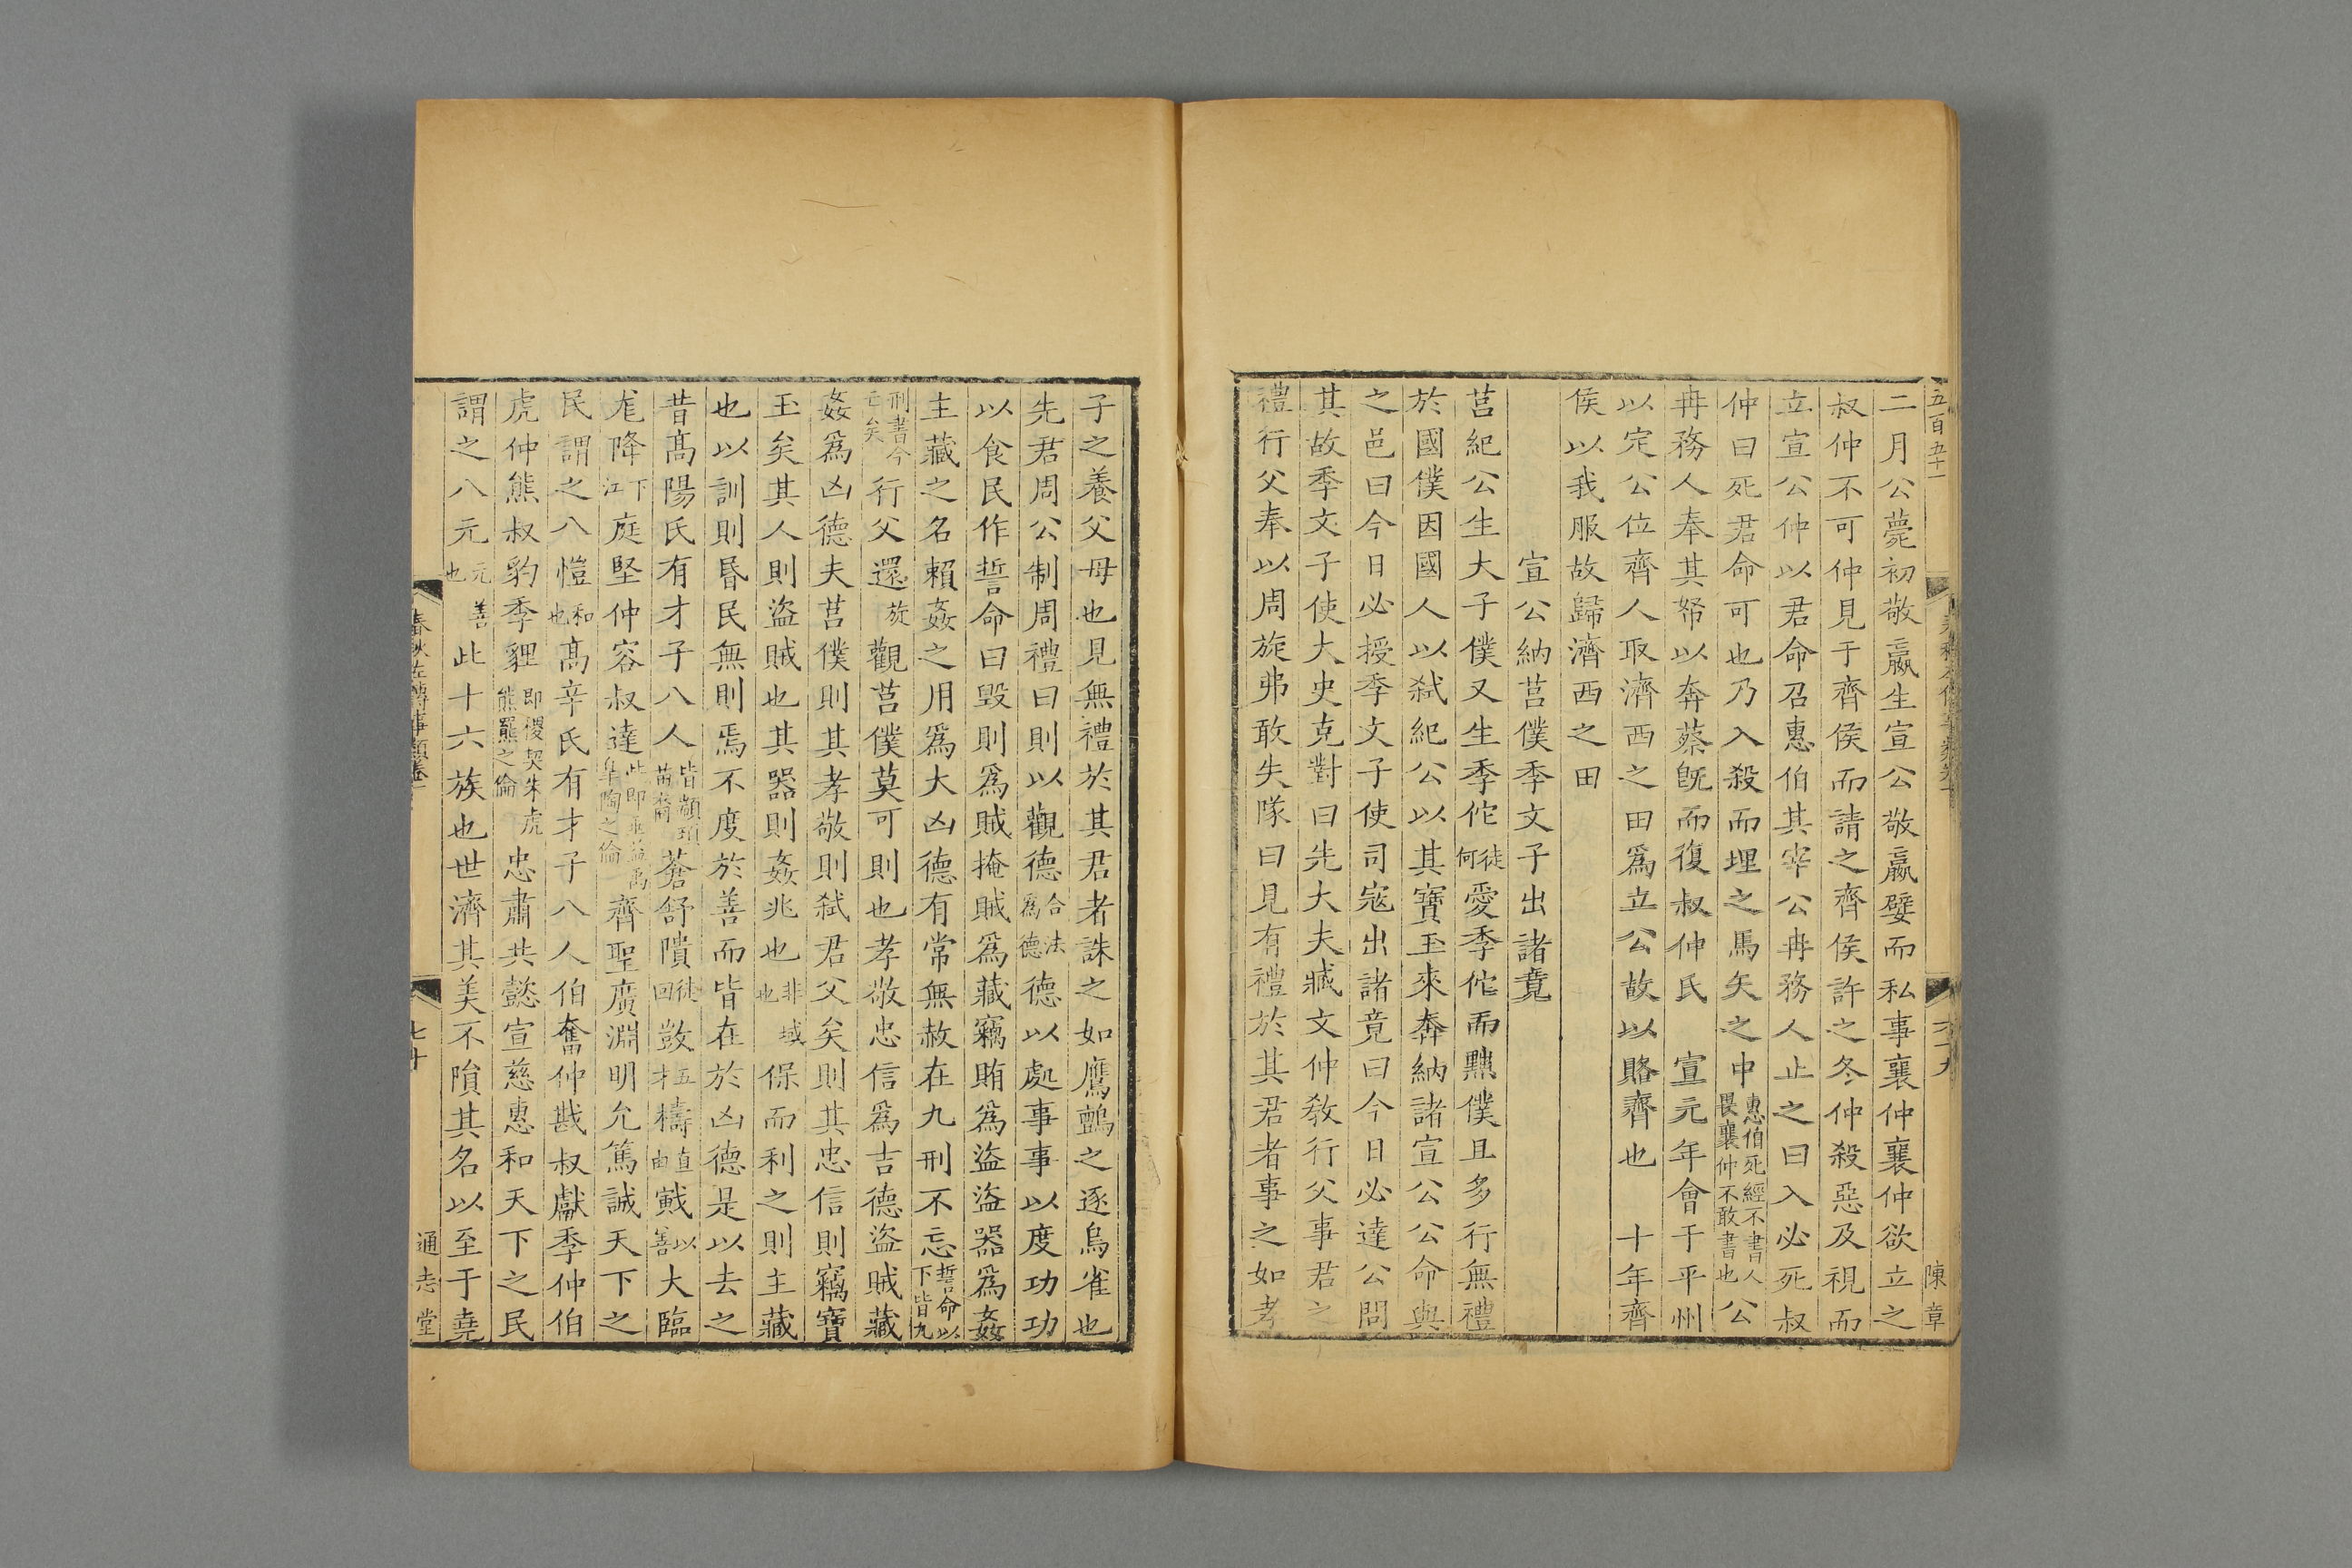 五百五十一
陳章
二月公薨初敬嬴生宣公敬嬴嬖而私事襄仲襄仲欲立之
叔仲不可仲見于齊侯而請之齊侯許之冬仲殺惡及視而
立宣公仲以君命召惠伯其宰公冉務人止之曰入必死叔
仲曰死君命可也乃入殺而埋之馬矢之中惠伯死經不書人畏襄仲不敢書也公
冉務人奉其帑以奔蔡旣而復叔仲氏 宣元年會于平州
以定公位齊人取濟西之田爲立公故以賂齊也 十年齊
侯以我服故歸濟西之田
宣公納莒僕季文子出諸竟
莒紀公生大子僕又生季佗徒何愛季佗而黜僕且多行無禮
於國僕因國人以弑紀公以其寶玉來奔納諸宣公公命與
之邑曰今日必授季文子使司寇出諸竟曰今日必達公問
其故季文子使大史克對曰先大夫臧文仲敎行父事君之
禮行父奉以周旋弗敢失隊曰見有禮於其君者事之如孝
子之養父母也見無禮於其君者誅之如鷹鸇之逐鳥雀也
先君周公制周禮曰則以觀德合法爲德德以處事事以度功功
以食民作誓命曰毀則爲賊掩賊爲藏竊賄爲盜盜器爲姦
主藏之名賴姦之用爲大凶德有常無赦在九刑不忘誓命以下皆九
刑書今亡矣行父還旋觀莒僕莫可則也孝敬忠信爲吉德盜賊藏
姦爲凶德夫莒僕則其孝敬則弑君父矣則其忠信則竊寶
玉矣其人則盜賊也其器則姦兆也非域也保而利之則主藏
也以訓則昏民無則焉不度於善而皆在於凶德是以去之
昔髙陽氏有才子八人皆顓頊苗裔蒼舒隤徒回敳五才檮直由戭以善大臨
尨降下江庭堅仲容叔達此即垂益禹皐陶之倫齊聖廣淵明允篤誠天下之
民謂之八愷和也髙辛氏有才子八人伯奮仲戡叔獻季仲伯
虎仲熊叔豹季貍即稷契朱虎熊羆之倫忠肅共懿宣慈惠和天下之民
謂之八元元善也此十六族也世濟其美不隕其名以至于堯
春秋左傳事類卷一
七十
通志堂